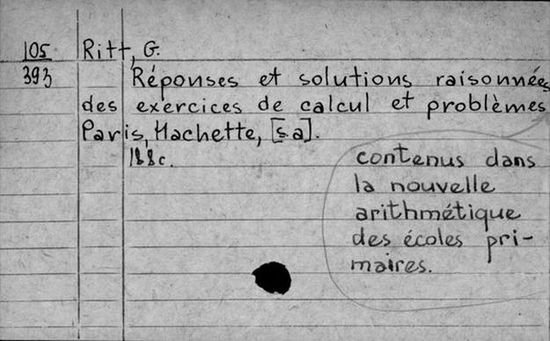 105 Ritt, G.
393 Réponses et solutions raisonnées
des exercices de calcul et problèmes
Paris, Hachette, [s a].
188c.
contenus dans
la nouvelle
arithmétique
des écoles pri-
maires.